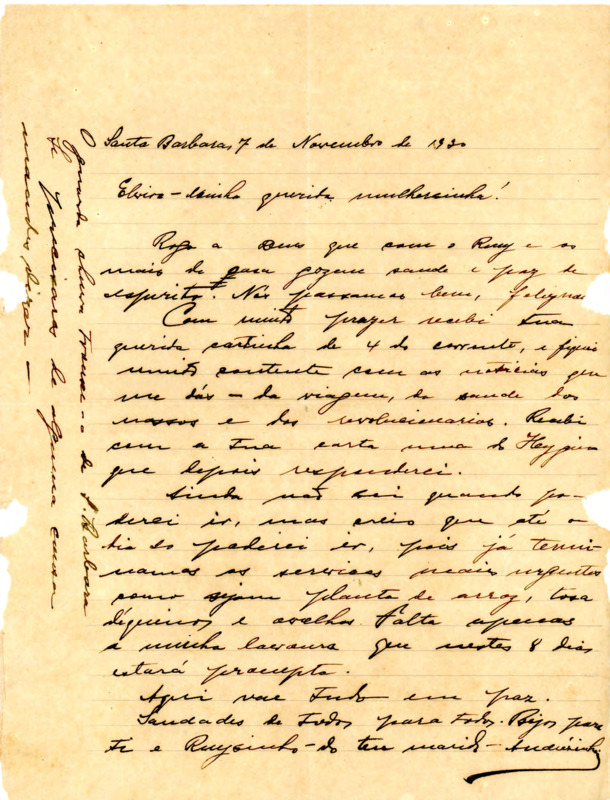 Santa Barbara, 7 de Novembro de 1930
Elvira-sinha querida mulhersinha!
Rogo a Deus que com o Ruy e os
mais de casa gozem saude e paz de
espirito. Nós passamos bem, felizmente
Com muito prazer recebi tua
querida cartinha de 4 do corrente, e fiquei
muito contente com as noticias que
me dás - da viagem, da saude dos
nossos e dos revolucionarios. Recebi
com a tua carta uma do
que depois responderei.
Ainda não sei quando po-
derei ir, mas creio que até o
dia 20 poderei ir, pois já termi-
namos os serviços mais urgentes
como sejam planta de arroz, tosa
d'égueiros e ovelhas. Falta apenas
a minha lavoura que nestes 8 dias
estará prompta.
Aqui vae tudo em paz.
Saudades de todos para todos. Bijos para
ti e Ruysinho - do teu marido - Andrésinho
O guarda chuva trouxe-o de S. Barbara
Se precisares de alguma cousa
mandes dizer -